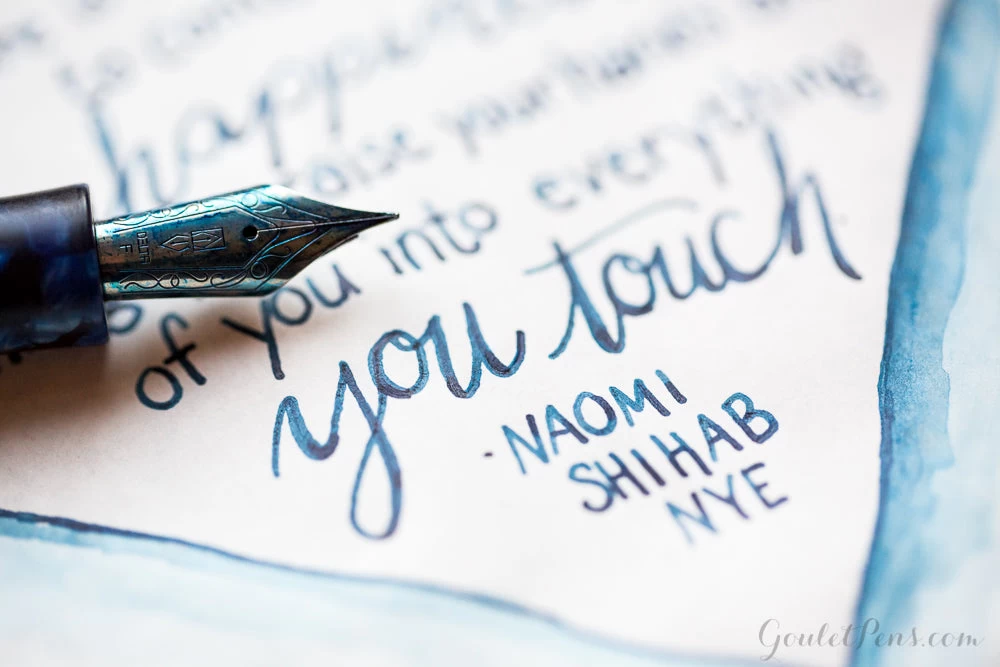 happ
raise your
of you into everything
you touch
-NAOMI
SHIHAB
NYE
DELTA
F
N
GouletPens.com